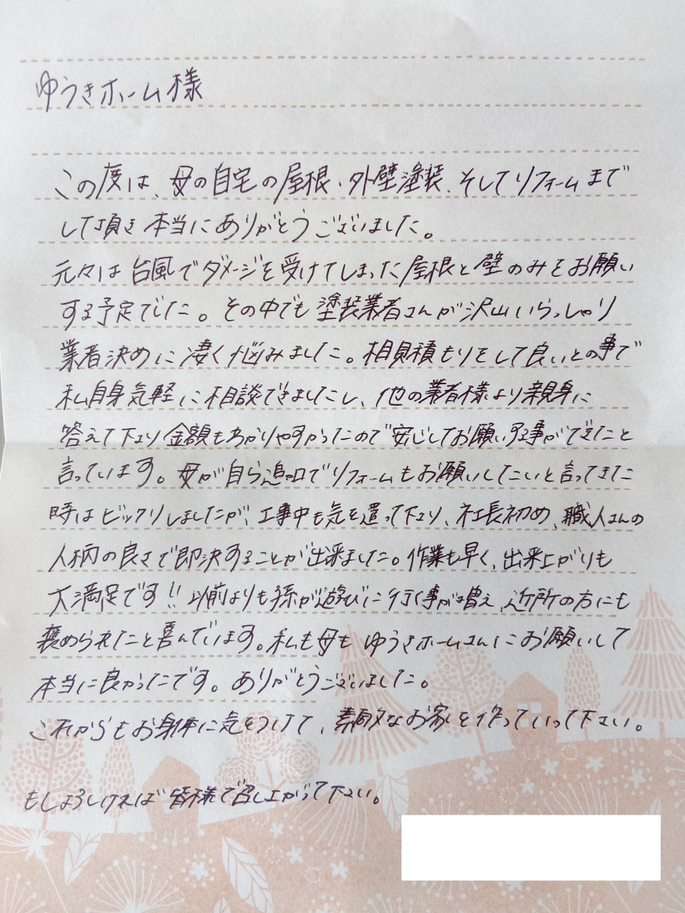 ゆうきホーム様
この度は、母の自宅の屋根・外壁塗装、そしてリフォームまで
して頂き本当にありがとうございました。
元々は台風でダメージを受けてしまった屋根と壁のみをお願い
する予定でした。その中でも塗装業者さんが沢山いらっしゃり
業者決めに凄く悩みました。相見積もりをして良いとの事で
私自身気軽に相談できましたし、他の業者様より親身に
答えて下さり金額もわかりやすかったので安心してお願いする事ができたと
言っています。母が自ら追加でリフォームもお願いしたいと言ってきた
時はビックリしましたが、工事中も気を遣って下さり、社長初め、職人さんの
人柄の良さで即決することが出来ました。作業も早く、出来上がりも
大満足です!!以前よりも孫が遊びに行く事が増え、近所の方にも
褒められたと喜んでいます。私も母もゆうきホームさんにお願いして
本当に良かったです。ありがとうございました。
これからもお身体に気をつけて、素敵なお家を作っていって下さい。
もしよろしければ皆様で召し上がって下さい。